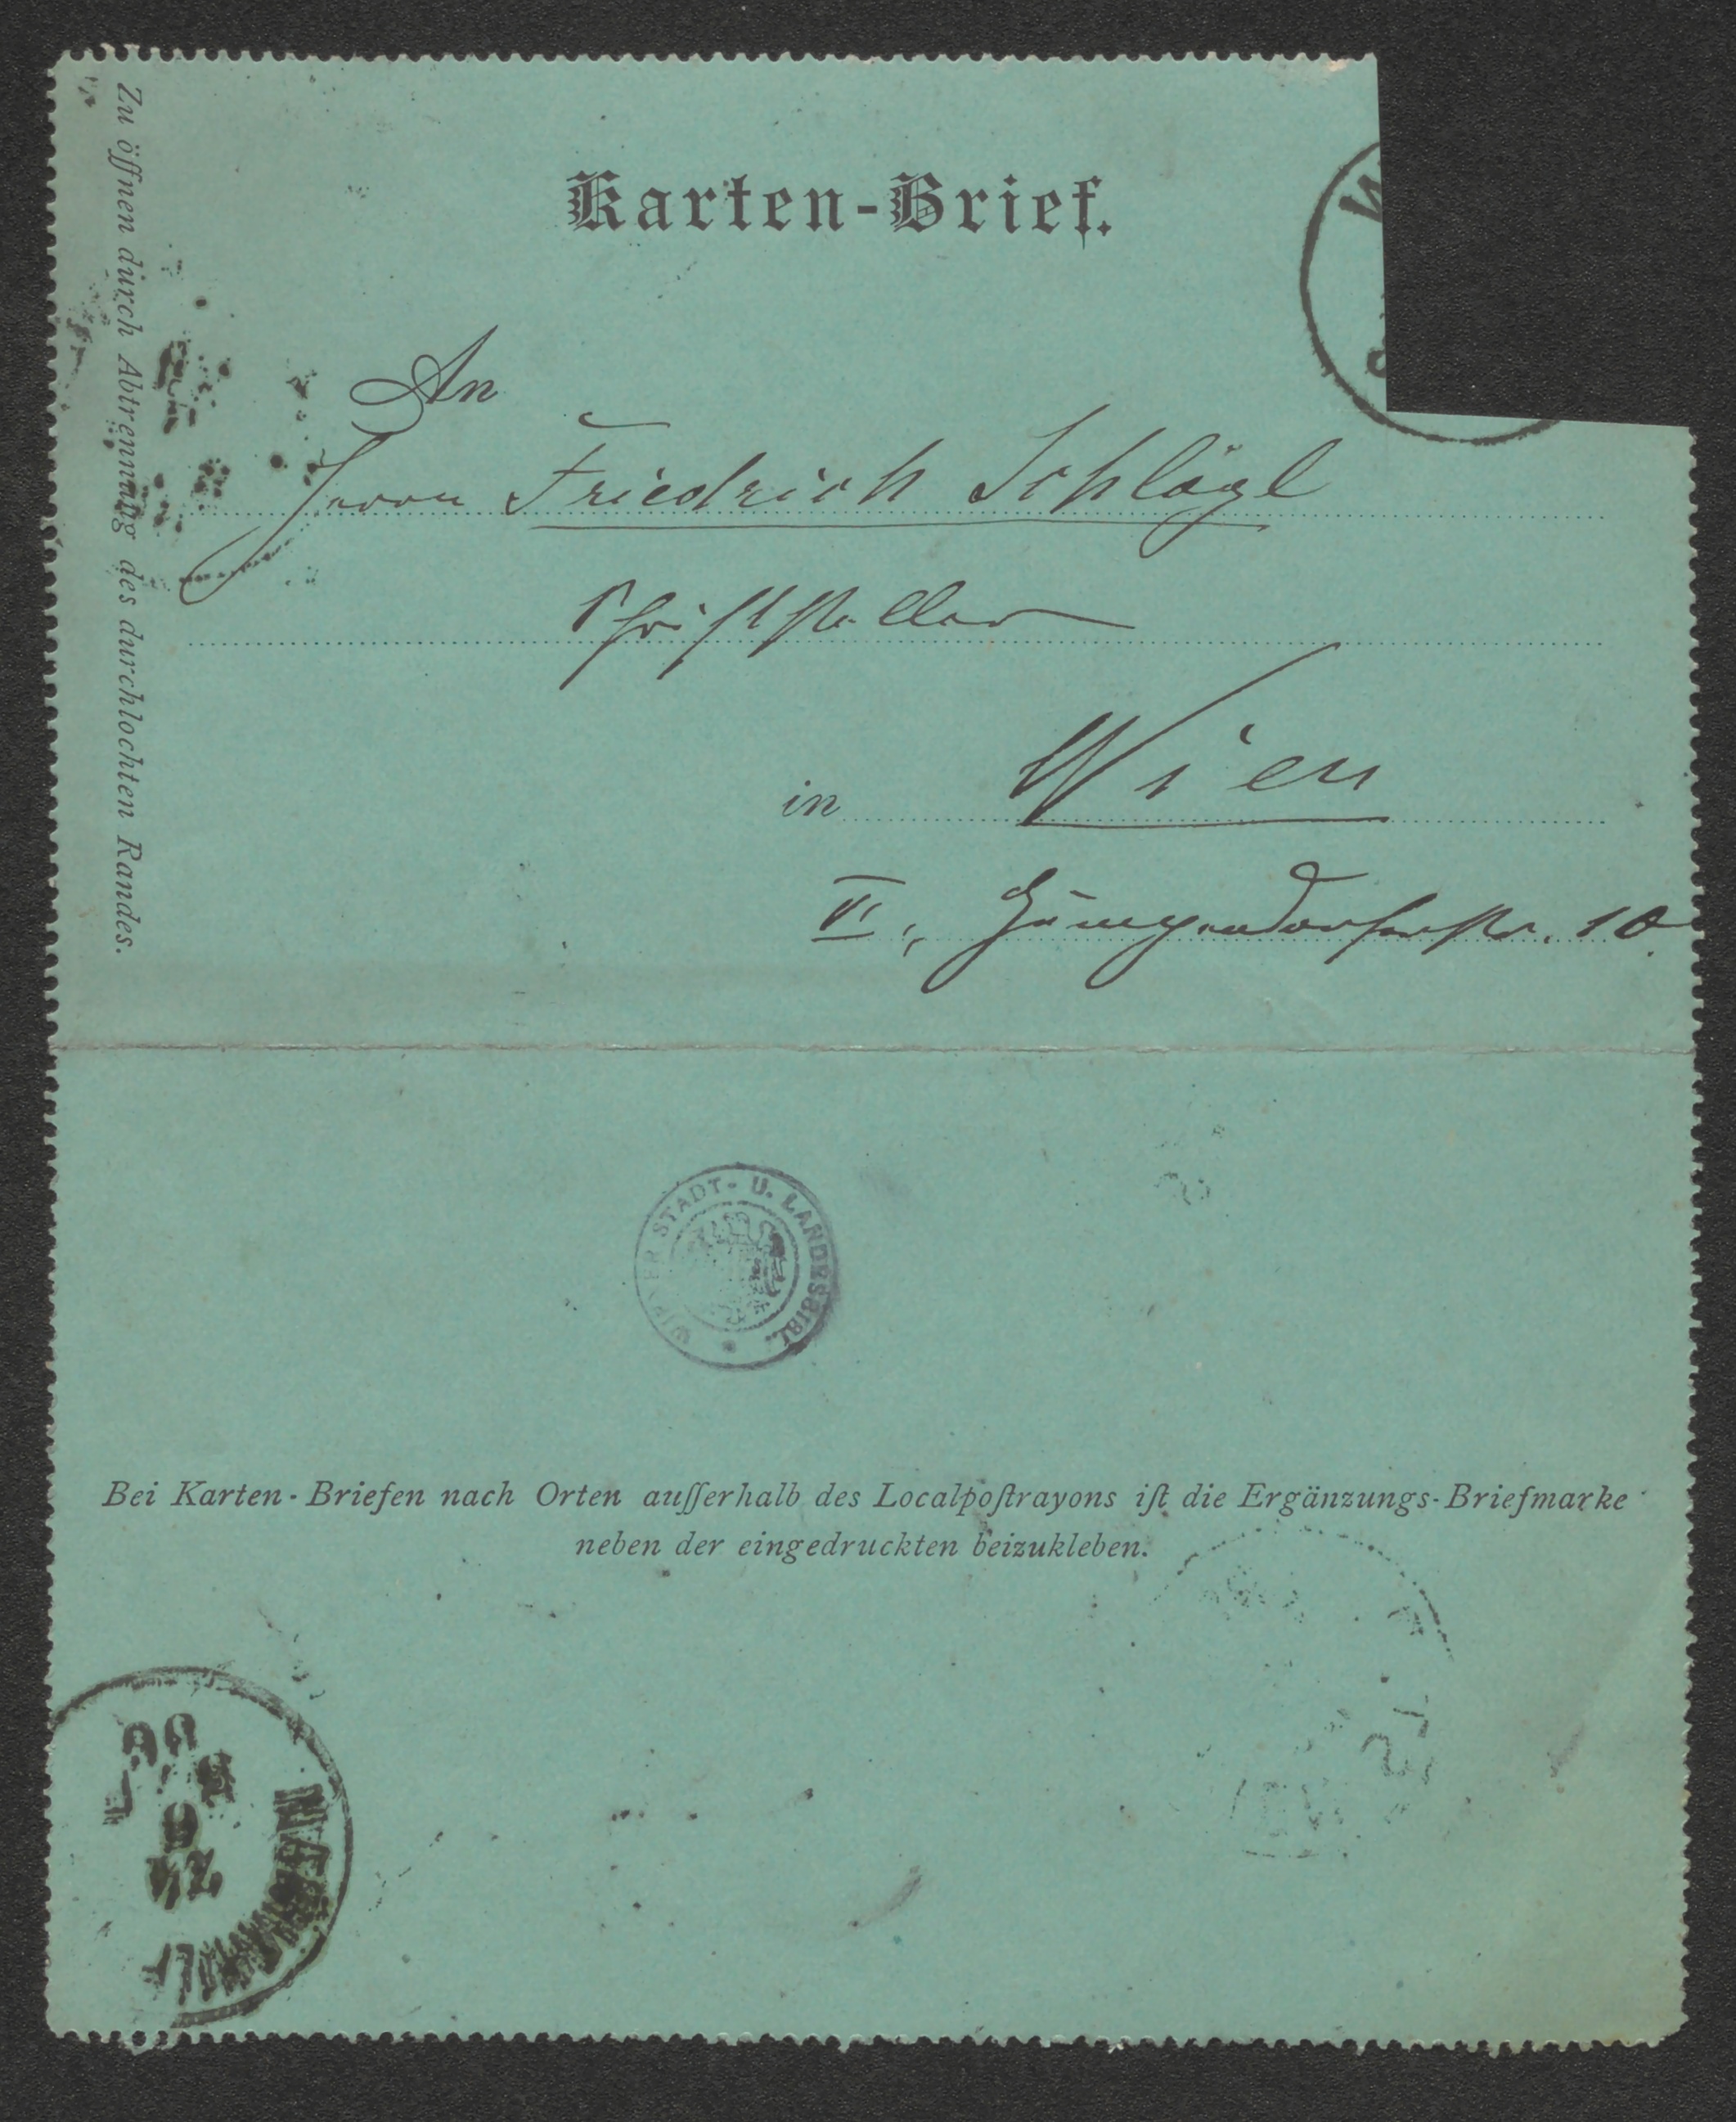 Karten-Brief.
An
Herrn Friedrich Schlögl
Schriftsteller
in Wien
VI., Gumpendorferstr. 10.
Zu öffnen durch Abtrennung des durchlochten Randes.
WIENER STADT- U. LANDESBIBL.
Bei Karten-Briefen nach Orten auſſerhalb des Localpoſtrayons iſt die Ergänzungs-Briefmarke
neben der eingedruckten beizukleben.